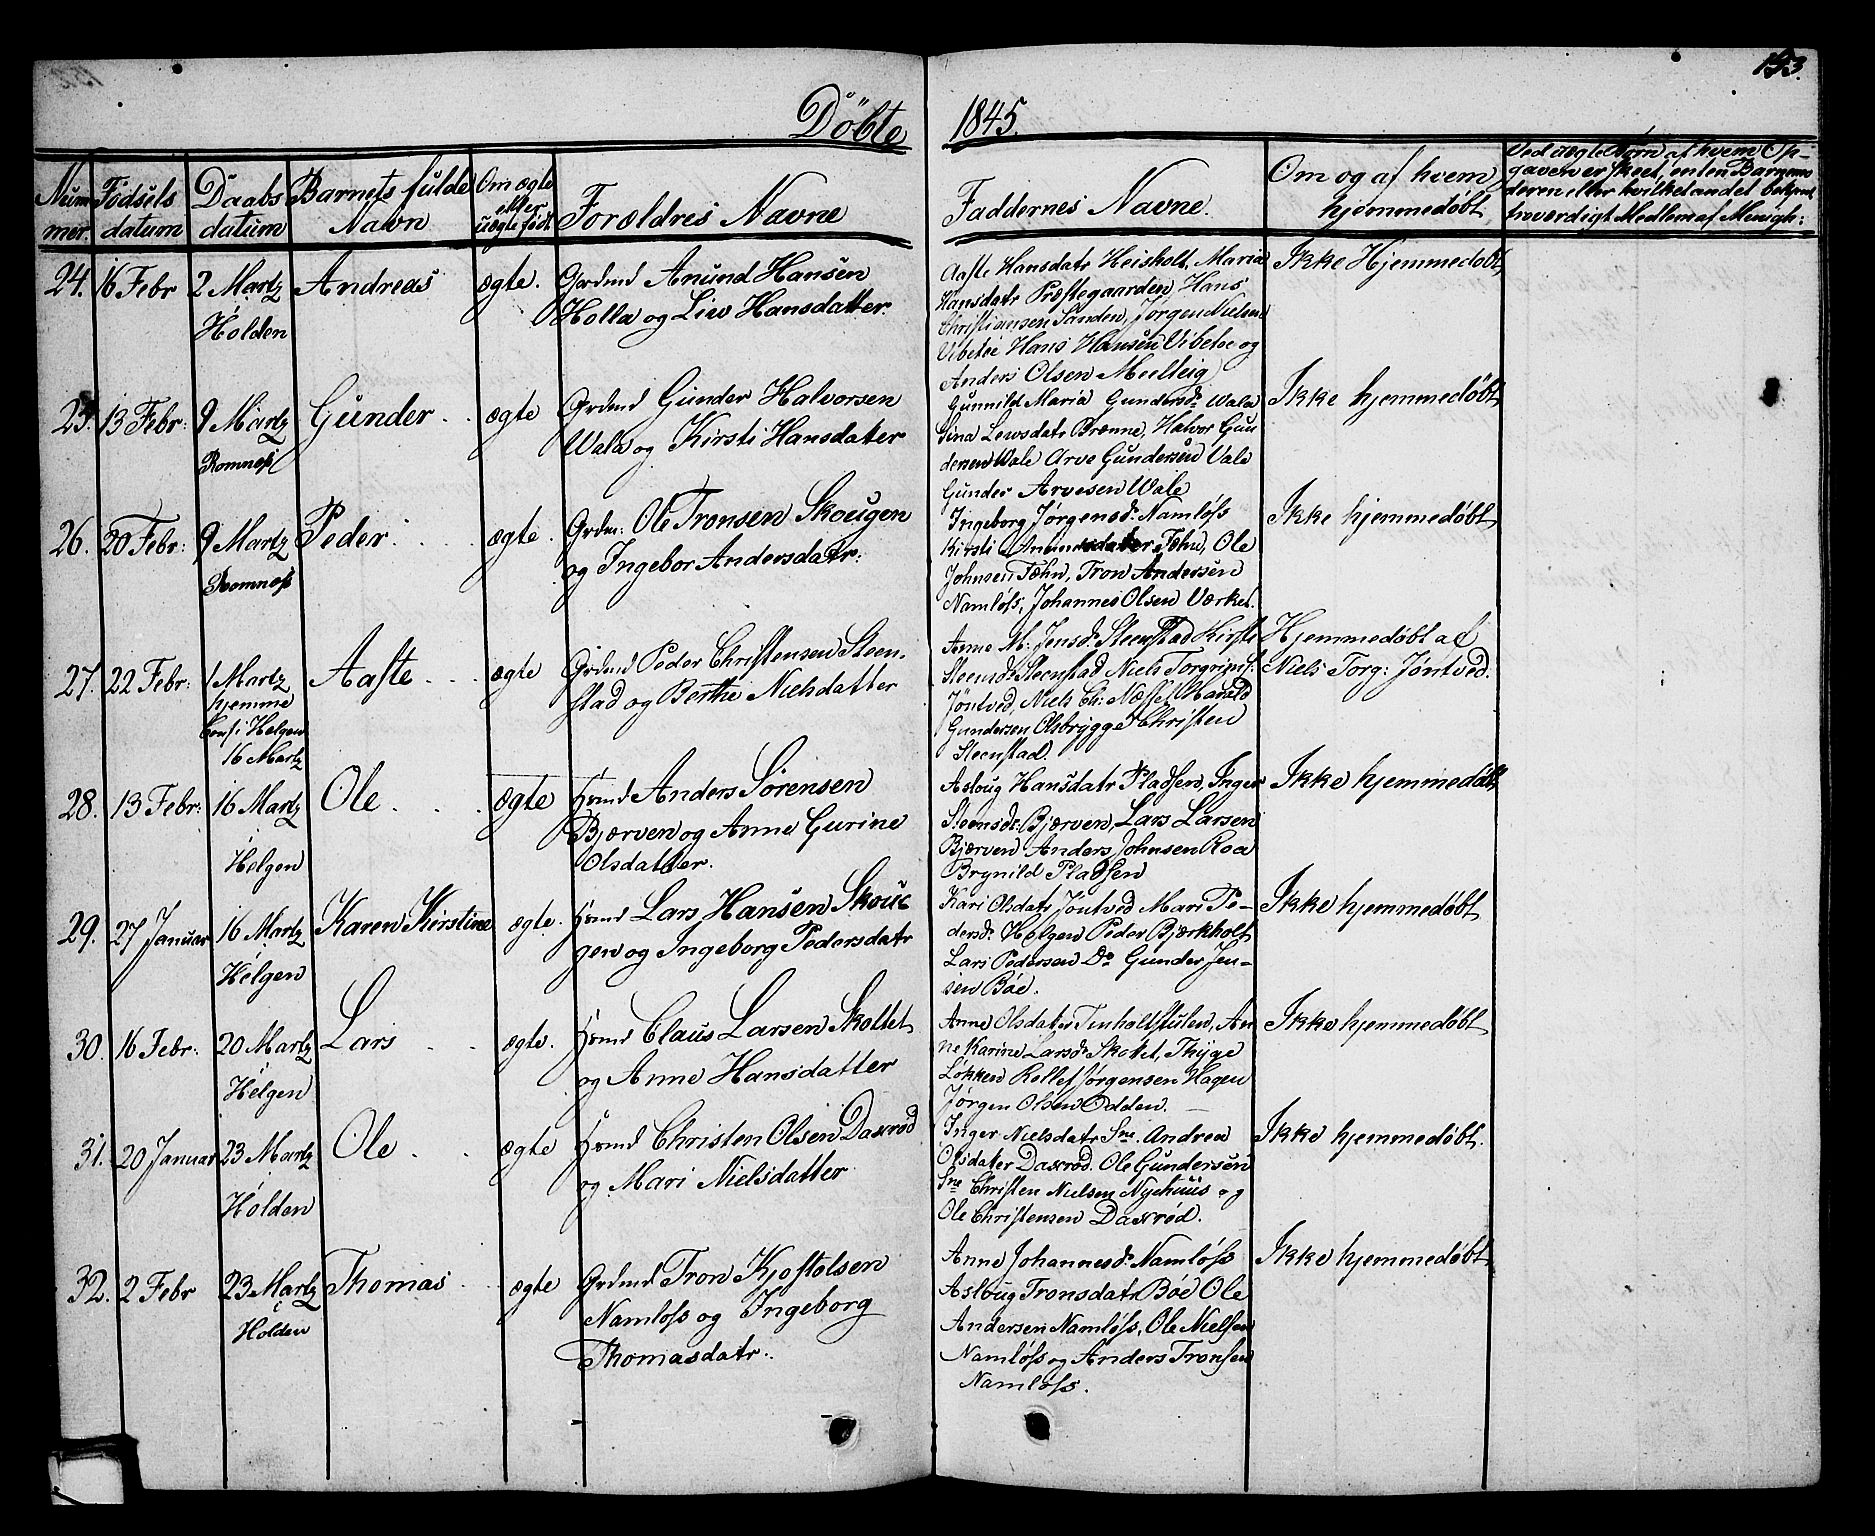 153.
Döbte 1845.
Num
mer.
Födsels
datum
Daabs
datum
Barnets fulde
Navn
Om ægte
eller
uægte født
Forældres Navne
Faddernes Navne.
Om og af hvem
hjemmedøbt
Ved uægte Børn af hvem Op-
gaven er skeet, enten Barnemo
deren eller hvilket andet bekjent
troværdigt Medlem af Menigh:
24. 16 Febr 2 Martz Andreas ægte. Grdmd Anund Hansen
Holden
Holla og Liv Hansdatter.
Aaste Hansdatr Heisholt, Maria
Hansdatr Præstegaarden, Hans
Christiansen Sanden, Jørgen Nielsen
Vibetoe Hans Hansen Vibetoe og
Anders Olsen Melteig
Ikke Hjemmedøbt
25. 13 Febr: 9 Martz Gunder ægte Grdmd Gunder Halvorsen
Romnes
Wala og Kirsti Hansdatter
Gunnild Maria Gundersdr Wala
Sina Lewsdatr Brenne, Halvor Gun
dersen Wale Arve Gundersen Vale
Gunder Arvesen Wale
Ikke hjemmedøbt
26. 20 Febr: 9 Martz Peder ægte. Grdm: Ole Tronsen Skougen
Romnes
og Ingebor Andersdatr:
Ingeborg Jørgensd: Namløss
Kirsti Fæhn, Ole
Johnsen Fæhn, Tron Andersen
Namløss, Johannes Olsen Værket.
Ikke hjemmedøbt
27. 22 Febr: 1 Martz Aaste ægte Grdmd Peder Christensen Steen-
hjemme
Conf i Helgen
16 Martz
stad og Berthe Nielsdatter
Anne M: Jensd: Steenstad Kirsti
Steensdr Steenstad Niels Torgrims:
Jöntved, Niels Ch: Næsset, Harald
Gundersen Olsbrygge Christen
Steenstad.
Hjemmedøbt af
Niels Torg: Jöntved.
28. 13 Febr: 16 Martz Ole ægte Hmd Anders Sörensen
Helgen
Bjærven og Anne Gurine
Olsdatter.
Asloug Hansdatr Pladsen, Inger
Steensdr: Bjærven, Lars Larsen
Bjærven Anders Johnsen Roa
Brynild Pladsen
Ikke hjemmedøbt
29. 27 Januar 16 Martz Karen Kirstine ægte. Hmd Lars Hansen Skou
Helgen
gen og Ingeborg Pedersdatr
Kari Olsdatr Jöntved Mari Pe-
dersd: Helgen Peder Bjærkholt
Lars Pedersen Do Gunder Jen-
sen Böe.
Ikke hjemmedøbt
30. 16 Febr: 20 Martz Lars ægte. Hmd Claus Larsen Skottet
Helgen
og Anne Hansdatter
Anne Olsdater Tinholtstulen, An
ne Karine Larsdr Skotet, Thyge
Løkken Rollef Jørgensen Hagen
Jørgen Olsen Odden.
Ikke hjemmedøbt
31. 20 Januar 23 Martz Ole ægte Hmd Christen Olsen Daxrød
Holden
og Mari Nielsdatter
Inger Nielsdatr Sne. Andrea
Olsdater Daxrød. Ole Gundersen
Sne Christen Nielsen Nyehuus og
Ole Christensen Daxrød.
Ikke hjemmedøbt.
32. 2 Febr 23 Martz Thomas ægte Grdmd Tron Kjostolsen
Holden
Namløss og Ingeborg
Thomasdatr.
Anne Johannesd: Namløss
Asloug Tronsdatr Böe Ole
Andersen Namløss, Ole Nielsen
Namløss og Anders Tronsen
Namløss.
Ikke hjemmedøbt